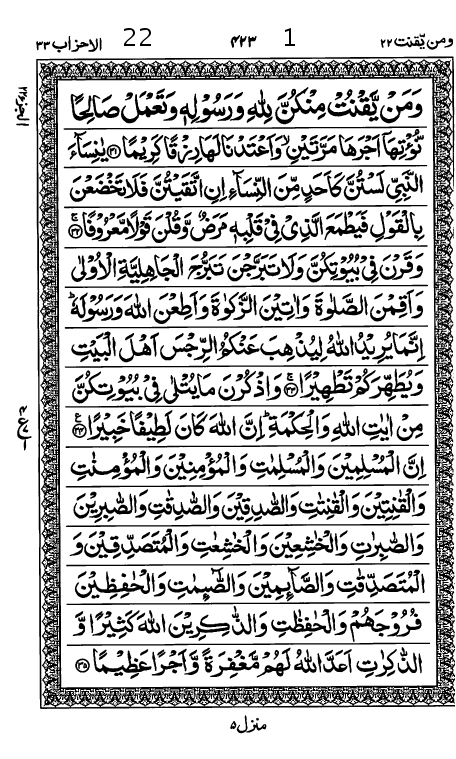 ومن يّقنت ٢٢ 1 ٤٢٣ 22 الاحزاب ٣٣
وَمَنْ يَّقْنُتْ مِنْكُنَّ لِلّٰهِ وَرَسُوْلِهٖ وَتَعْمَلْ صَالِحًا
نُّؤْتِهَاۤ اَجْرَهَا مَرَّتَيْنِ ۙ وَاَعْتَدْنَا لَهَا رِزْقًا كَرِيْمًا ﴿۳۱﴾ يٰنِسَآءَ
النَّبِيِّ لَسْتُنَّ كَاَحَدٍ مِّنَ النِّسَآءِ اِنِ اتَّقَيْتُنَّ فَلَا تَخْضَعْنَ
بِالْقَوْلِ فَيَطْمَعَ الَّذِيْ فِيْ قَلْبِهٖ مَرَضٌ وَّقُلْنَ قَوْلًا مَّعْرُوْفًا ﴿۳۲﴾
وَقَرْنَ فِيْ بُيُوْتِكُنَّ وَلَا تَبَرَّجْنَ تَبَرُّجَ الْجَاهِلِيَّةِ الْاُوْلٰى
وَاَقِمْنَ الصَّلٰوةَ وَاٰتِيْنَ الزَّكٰوةَ وَاَطِعْنَ اللّٰهَ وَرَسُوْلَهٗ ؕ
اِنَّمَا يُرِيْدُ اللّٰهُ لِيُذْهِبَ عَنْكُمُ الرِّجْسَ اَهْلَ الْبَيْتِ
وَيُطَهِّرَكُمْ تَطْهِيْرًا ﴿۳۳﴾ وَاذْكُرْنَ مَا يُتْلٰى فِيْ بُيُوْتِكُنَّ
مِنْ اٰيٰتِ اللّٰهِ وَالْحِكْمَةِ ؕ اِنَّ اللّٰهَ كَانَ لَطِيْفًا خَبِيْرًا ﴿۳۴﴾
اِنَّ الْمُسْلِمِيْنَ وَالْمُسْلِمٰتِ وَالْمُؤْمِنِيْنَ وَالْمُؤْمِنٰتِ
وَالْقٰنِتِيْنَ وَالْقٰنِتٰتِ وَالصّٰدِقِيْنَ وَالصّٰدِقٰتِ وَالصّٰبِرِيْنَ
وَالصّٰبِرٰتِ وَالْخٰشِعِيْنَ وَالْخٰشِعٰتِ وَالْمُتَصَدِّقِيْنَ وَ
الْمُتَصَدِّقٰتِ وَالصَّآئِمِيْنَ وَالصّٰٓئِمٰتِ وَالْحٰفِظِيْنَ
فُرُوْجَهُمْ وَالْحٰفِظٰتِ وَالذّٰكِرِيْنَ اللّٰهَ كَثِيْرًا وَّ
الذّٰكِرٰتِ اَعَدَّ اللّٰهُ لَهُمْ مَّغْفِرَةً وَّاَجْرًا عَظِيْمًا ﴿۳۵﴾
منزل ٥
الجزء ٢٢